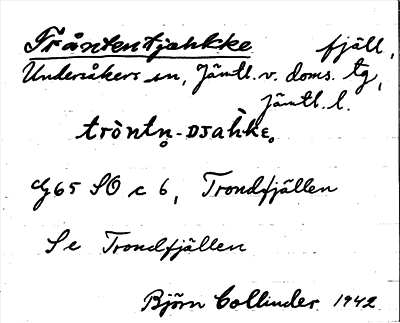 Tråntentjahkke fjäll,
Undersåkers sn, Jämtl. v. doms. tg,
Jämtl. l.
tròntn̥-DJahke̥
G65 SO c 6, Trondfjällen
Se Trondfjällen
Björn Collinder 1942